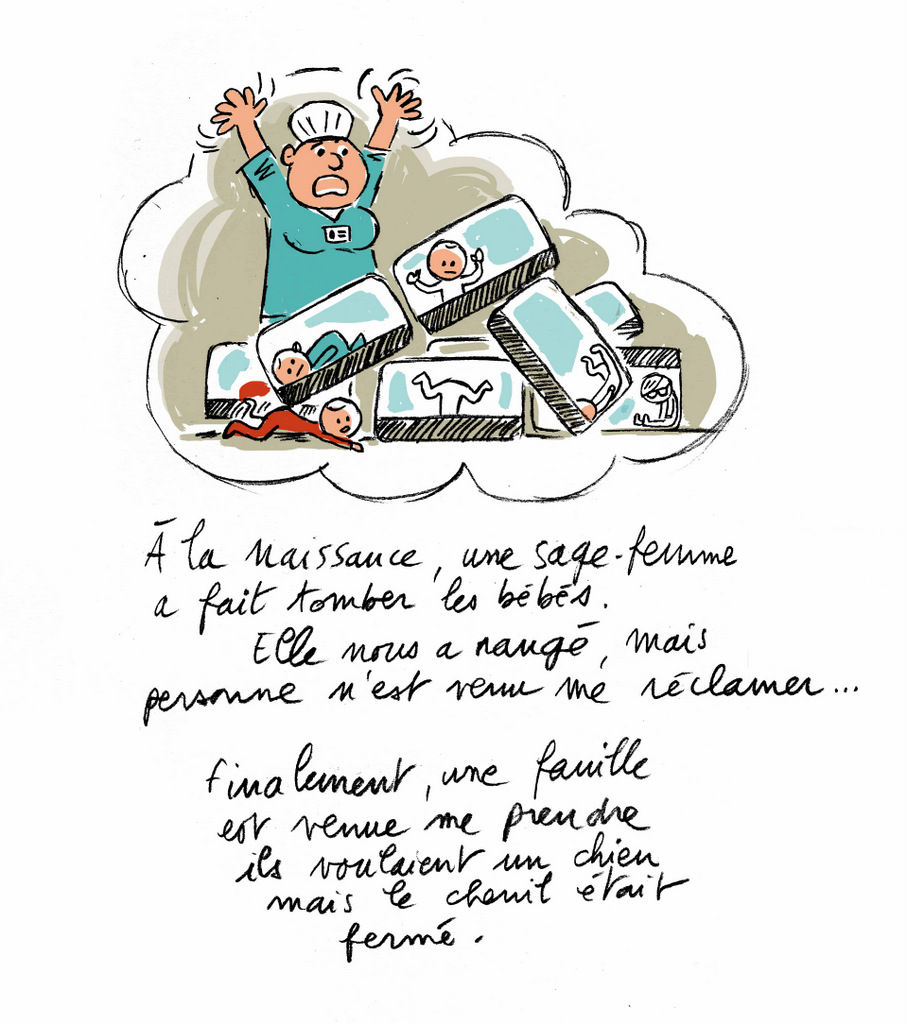 À la naissance, une sage-femme
a fait tomber les bébés.
Elle nous a rangé, mais
personne n'est venu me réclamer...
Finalement, une famille
est venue me prendre
ils voulaient un chien
mais le chenil était
fermé.